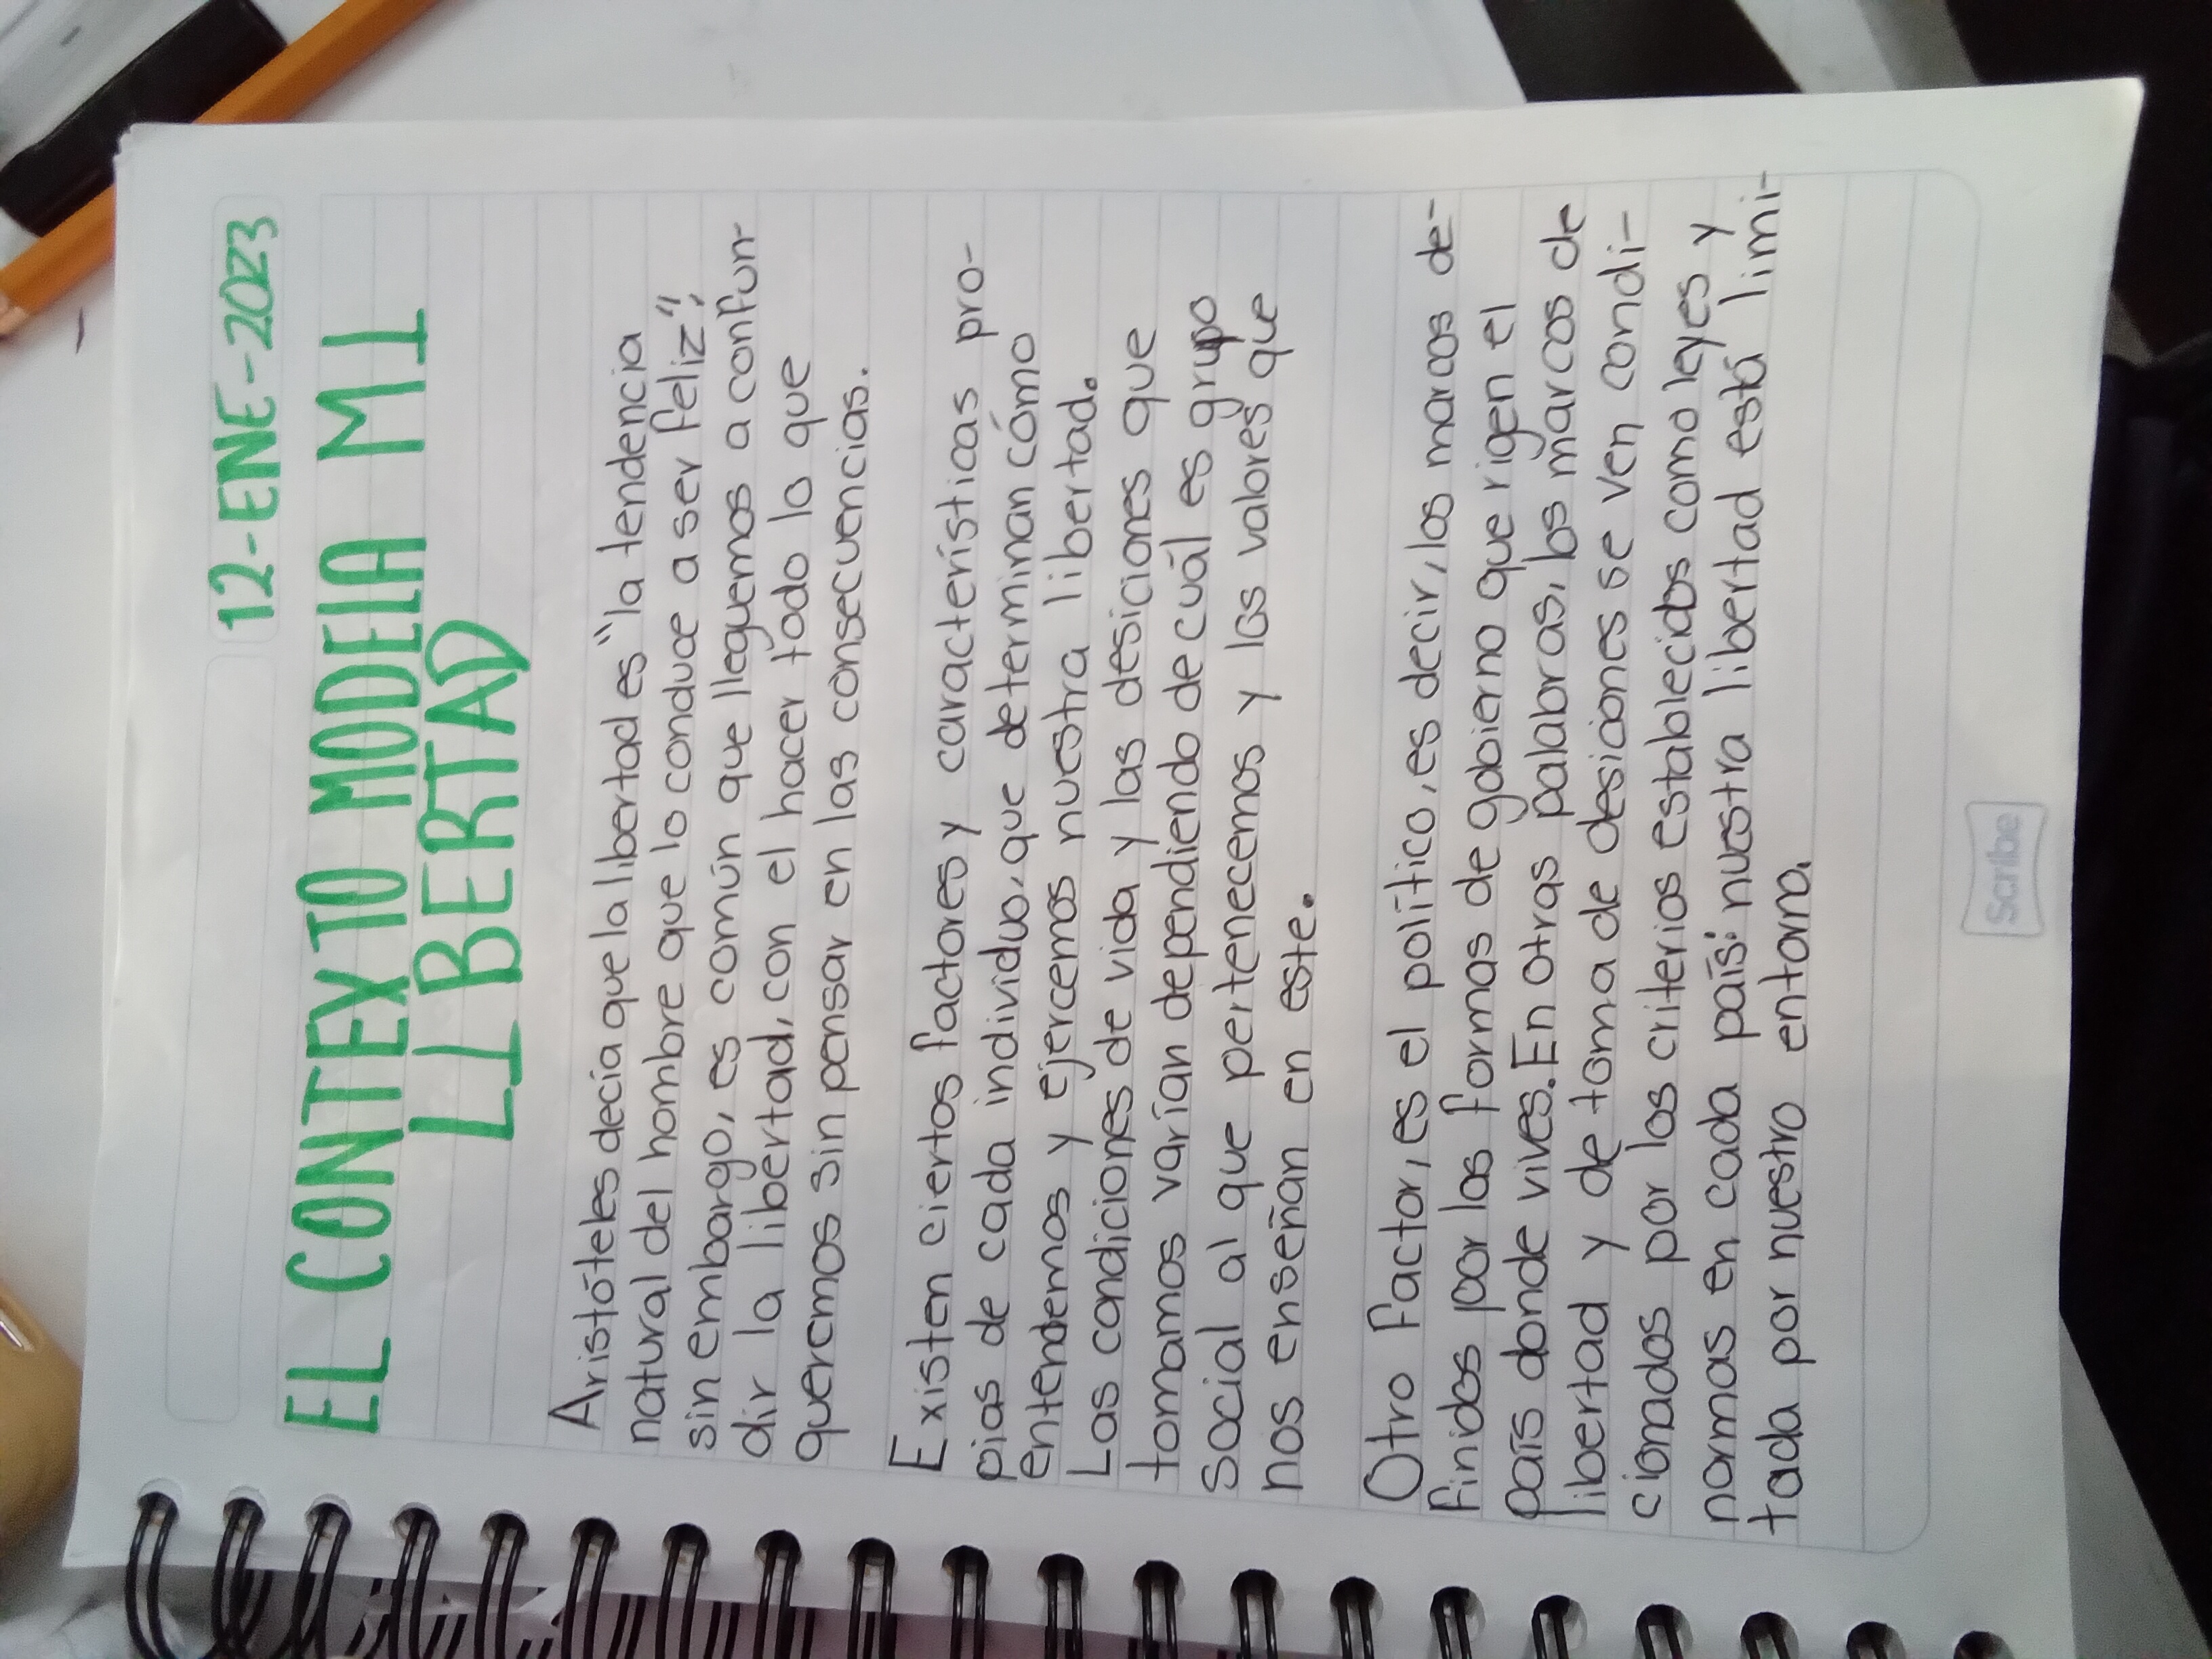 12-ENE-2023
EL CONTEXTO MODELA MI
LIBERTAD
Aristóteles decía que la libertad es "la tendencia
natural del hombre que lo conduce a ser feliz",
sin embargo, es común que lleguemos a confun-
dir la libertad, con el hacer todo lo que
queremos sin pensar en las consecuencias.
Existen ciertos factores y características pro-
pias de cada individuo, que determinan cómo
entendemos y ejercemos nuestra libertad.
Las condiciones de vida y las desiciones que
tomamos varían dependiendo de cuál es grupo
social al que pertenecemos y los valores que
nos enseñan en este.
Otro factor, es el político, es decir, los marcos de-
finidos por las formas de gobierno que rigen el
país donde vives. En otras palabras, los marcos de
libertad y de toma de desiciones se ven condi-
cionados por los criterios establecidos como leyes y
normas en cada país: nuestra libertad está limi-
tada por nuestro entorno.
Scribe